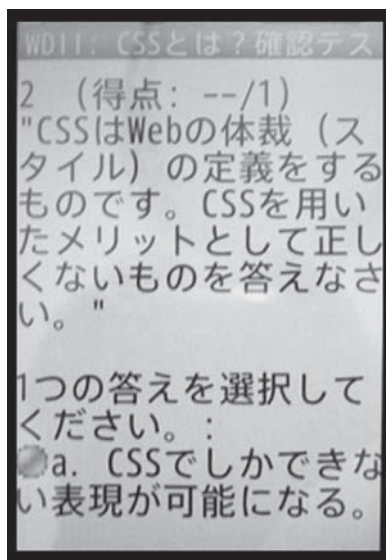 WDII: CSSとは？確認テス
2 （得点: --/1）
"CSSはWebの体裁（ス
タイル）の定義をする
ものです。CSSを用い
たメリットとして正し
くないものを答えなさ
い。"
1つの答えを選択して
ください。:
a. CSSでしかできな
い表現が可能になる。